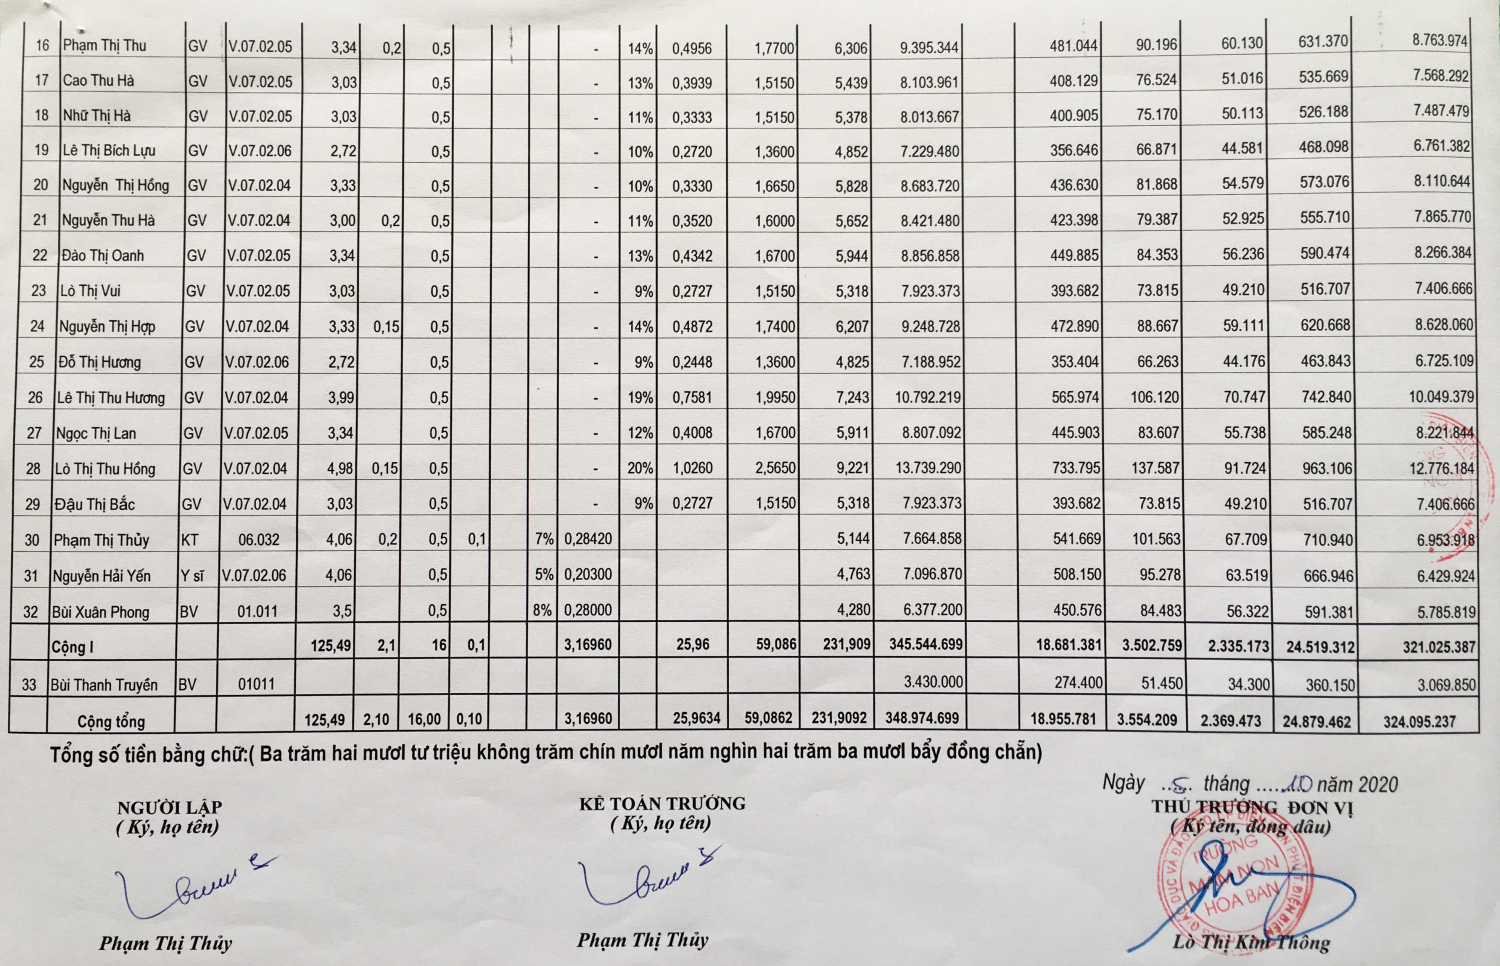 16 Phạm Thị Thu GV V.07.02.05 3,34 0,2 0,5 - 14% 0,4956 1,7700 6,306 9.395.344 481.044 90.196 60.130 631.370 8.763.974
17 Cao Thu Hà GV V.07.02.05 3,03 0,5 - 13% 0,3939 1,5150 5,439 8.103.961 408.129 76.524 51.016 535.669 7.568.292
18 Nhữ Thị Hà GV V.07.02.05 3,03 0,5 - 11% 0,3333 1,5150 5,378 8.013.667 400.905 75.170 50.113 526.188 7.487.479
19 Lê Thị Bích Lựu GV V.07.02.06 2,72 0,5 - 10% 0,2720 1,3600 4,852 7.229.480 356.646 66.871 44.581 468.098 6.761.382
20 Nguyễn Thị Hồng GV V.07.02.04 3,33 0,5 - 10% 0,3330 1,6650 5,828 8.683.720 436.630 81.868 54.579 573.076 8.110.644
21 Nguyễn Thu Hà GV V.07.02.04 3,00 0,2 0,5 - 11% 0,3520 1,6000 5,652 8.421.480 423.398 79.387 52.925 555.710 7.865.770
22 Đào Thị Oanh GV V.07.02.05 3,34 0,5 - 13% 0,4342 1,6700 5,944 8.856.858 449.885 84.353 56.236 590.474 8.266.384
23 Lò Thị Vui GV V.07.02.05 3,03 0,5 - 9% 0,2727 1,5150 5,318 7.923.373 393.682 73.815 49.210 516.707 7.406.666
24 Nguyễn Thị Hợp GV V.07.02.04 3,33 0,15 0,5 - 14% 0,4872 1,7400 6,207 9.248.728 472.890 88.667 59.111 620.668 8.628.060
25 Đỗ Thị Hương GV V.07.02.06 2,72 0,5 - 9% 0,2448 1,3600 4,825 7.188.952 353.404 66.263 44.176 463.843 6.725.109
26 Lê Thị Thu Hương GV V.07.02.04 3,99 0,5 - 19% 0,7581 1,9950 7,243 10.792.219 565.974 106.120 70.747 742.840 10.049.379
27 Ngọc Thị Lan GV V.07.02.05 3,34 0,5 - 12% 0,4008 1,6700 5,911 8.807.092 445.903 83.607 55.738 585.248 8.221.844
28 Lò Thị Thu Hồng GV V.07.02.04 4,98 0,15 0,5 - 20% 1,0260 2,5650 9,221 13.739.290 733.795 137.587 91.724 963.106 12.776.184
29 Đậu Thị Bắc GV V.07.02.04 3,03 0,5 - 9% 0,2727 1,5150 5,318 7.923.373 393.682 73.815 49.210 516.707 7.406.666
30 Phạm Thị Thủy KT 06.032 4,06 0,2 0,5 0,1 7% 0,28420 5,144 7.664.858 541.669 101.563 67.709 710.940 6.953.918
31 Nguyễn Hải Yến Y sĩ V.07.02.06 4,06 0,5 5% 0,20300 4,763 7.096.870 508.150 95.278 63.519 666.946 6.429.924
32 Bùi Xuân Phong BV 01.011 3,5 0,5 8% 0,28000 4,280 6.377.200 450.576 84.483 56.322 591.381 5.785.819
Cộng I 125,49 2,1 16 0,1 3,16960 25,96 59,086 231,909 345.544.699 18.681.381 3.502.759 2.335.173 24.519.312 321.025.387
33 Bùi Thanh Truyền BV 01011 3.430.000 274.400 51.450 34.300 360.150 3.069.850
Cộng tổng 125,49 2,10 16,00 0,10 3,16960 25,9634 59,0862 231,9092 348.974.699 18.955.781 3.554.209 2.369.473 24.879.462 324.095.237
Tổng số tiền bằng chữ:( Ba trăm hai mươI tư triệu không trăm chín mươI năm nghìn hai trăm ba mươI bẩy đồng chẵn)
Ngày ..5.. tháng ......10 năm 2020
NGƯỜI LẬP KẾ TOÁN TRƯỞNG THỦ TRƯỞNG ĐƠN VỊ
( Ký, họ tên) ( Ký, họ tên) ( Ký tên, đóng dấu)
TRƯỜNG
MẦM NON
HOA BAN
Phạm Thị Thủy Phạm Thị Thủy Lò Thị Kim Thông